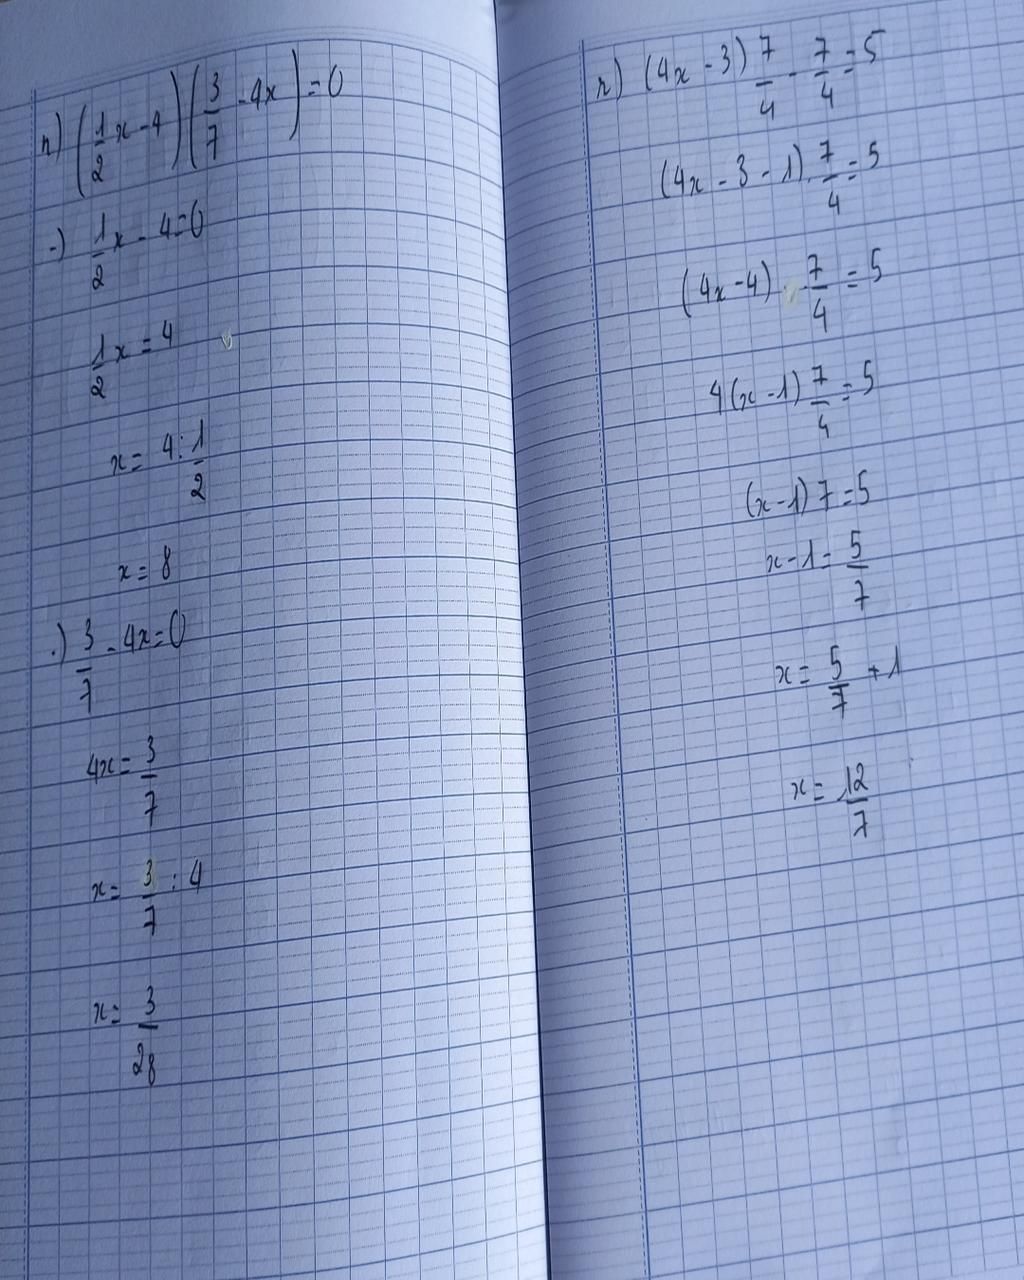 n) (1/2 x - 4) (3/7 - 4x) = 0
-) 1/2 x - 4 = 0
1/2 x = 4
x = 4 : 1/2
x = 8
.) 3/7 - 4x = 0
4x = 3/7
x = 3/7 : 4
x = 3/28
r) (4x - 3) 7/4 - 7/4 = 5
(4x - 3 - 1) . 7/4 = 5
(4x - 4) . 7/4 = 5
4(x - 1) 7/4 = 5
(x - 1) 7 = 5
x - 1 = 5/7
x = 5/7 + 1
x = 12/7